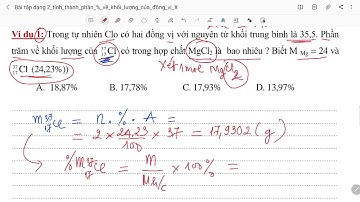 Bài tập dạng 2_tính_thành_phần_%_về_khối_lượng_của_đồng_vị_X
Ví dụ 1: Trong tự nhiên Clo có hai đồng vị với nguyên tử khối trung bình là 35,5. Phần
trăm về khối lượng của ³⁷₁₇Cl có trong hợp chất MgCl₂ là bao nhiêu ? Biết M Mg = 24 và
³⁷₁₇Cl (24,23%))
Xét 1 mol MgCl₂
A. 18,87% B. 17,78% C. 17,93% D. 13,97%
m ³⁷₁₇Cl = n . % . A =
= 2 × 24,23/100 × 37 = 17,9302 (g)
%m ³⁷₁₇Cl = m/M h/c × 100% =